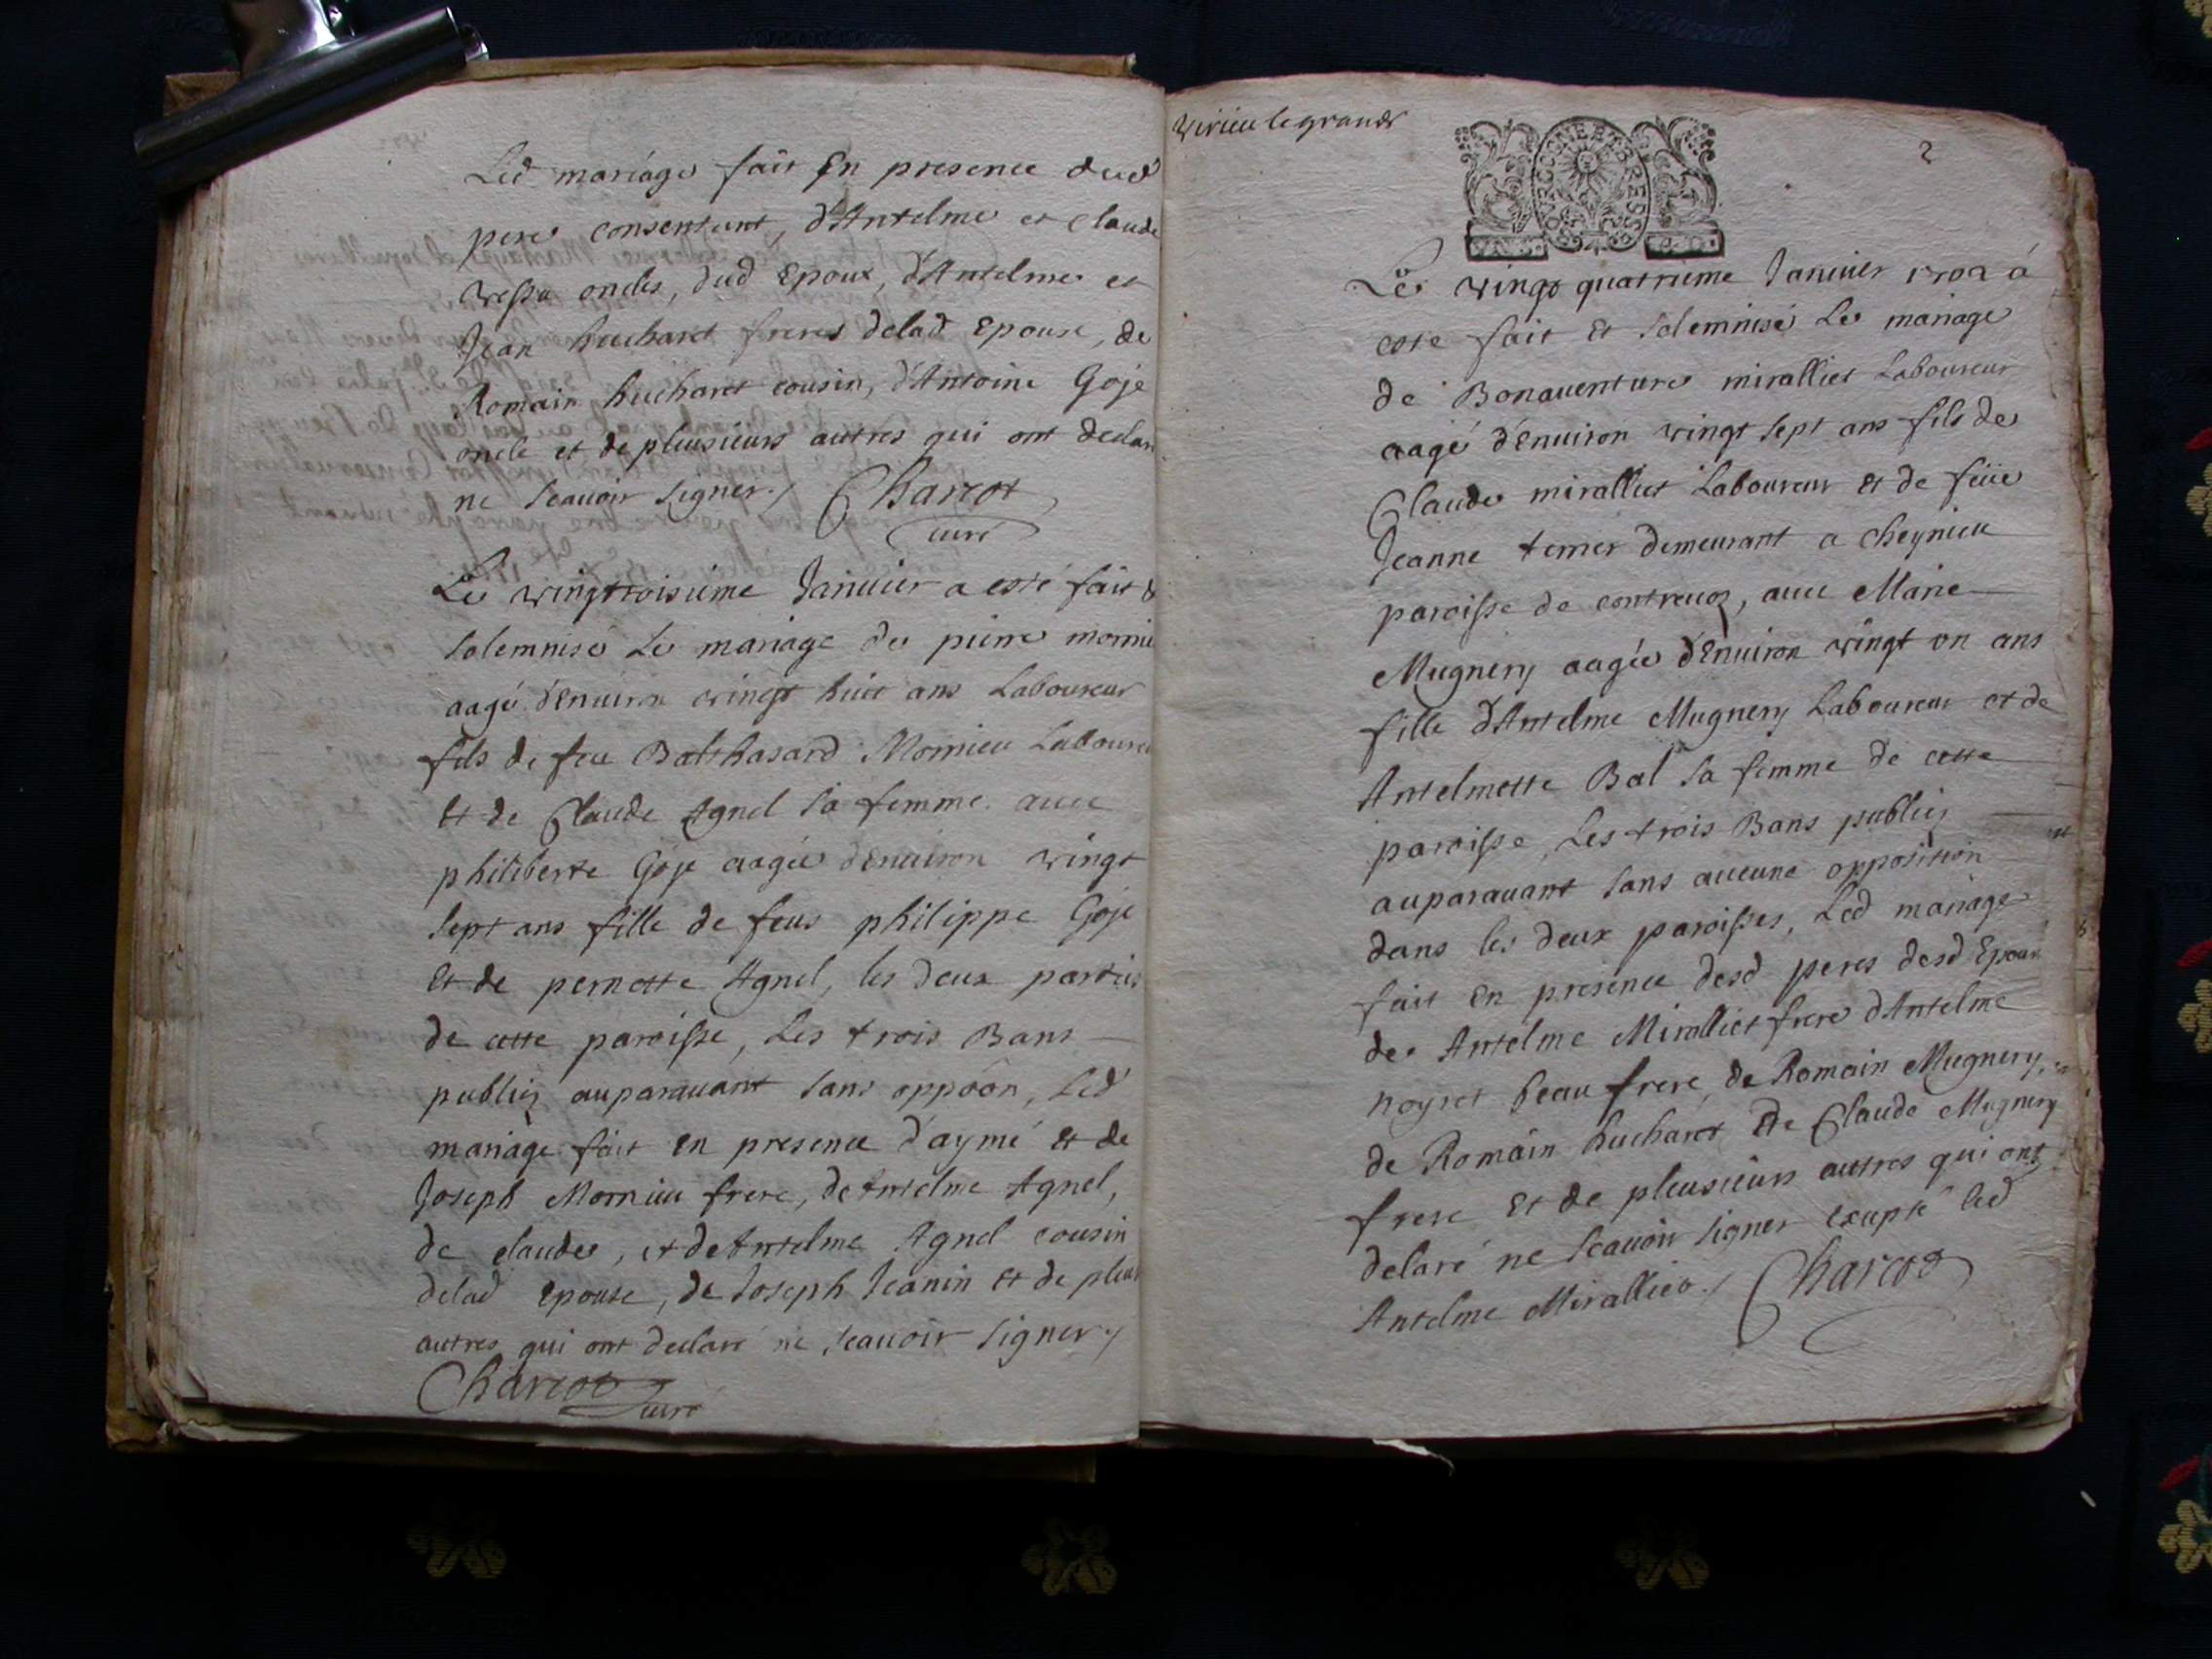 Led mariage fait En presence dud
pere consentant, d'Antelme et Claude
vessu oncles, dud Epoux, d'Antelme et
Jean huchard freres delad Epouse, de
Romain huchard cousin, d'Antoine Goje
oncle et de pleusieurs autres qui ont declaré
ne scauoir signer./ Charcot
curé
Le vingtroisieme Januier a esté fait &
solemnisé Le mariage de pierre mornieu
aagé d'Enuiron vingt huit ans Laboureur
fils de feu Balthasard Mornieu Laboureur
Et de Claude Agnel sa femme. auec
philiberte Goje aagée d'enuiron vingt
sept ans fille de feus philippe Goje
Et de pernette Agnel, les deux parties
de cette paroisse, Les trois Bans
publiez auparauant sans oppôôn, Led
mariage fait en presence d'aymé Et de
Joseph Mornieu frere, de Antelme Agnel,
de claude, et de Antelme Agnel cousin
delad Epouse, de Joseph Jeanin Et de pleus
autres qui ont declaré ne scauoir signer./
Charcot curé
Virieu le grand
2
GNERAL DE BOURG ET BRESSE
Le vingt quatrieme Januier 1702 á
esté fait Et solemnisé Le mariage
de Bonauenture miralliet Laboureur
aagé d'Enuiron vingt sept ans fils de
Claude miralliet Laboureur Et de feüe
Jeanne ternier demeurant a cheynieu
paroisse de contreuoz, auec Marie
Mugnery aagée d'Enuiron vingt vn ans
fille d'Antelme Mugnery Laboureur et de
Antelmette Bal sa femme de cette
paroisse, Les trois Bans publiez
auparauant sans aucune opposition
dans les deux paroisses, Led mariage
fait En presence desd peres desd Epoux
de Antelme Miralliet frere d'Antelme
noyret beau frere, de Romain Mugnery,
de Romain huchard Et de Claude Mugnery
frere Et de pleusieurs autres qui ont
delaré ne scauoir signer exupté led
Antelme Miralliet./ Charcot